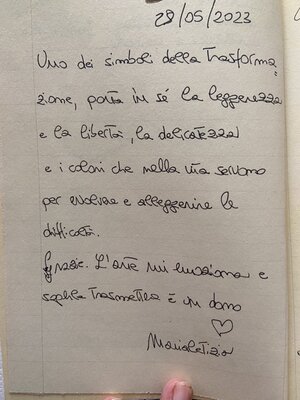 28/05/2023
Uno dei simboli della trasforma
zione, porta in sé la leggerezza
e la libertà, la delicatezza
e i colori che nella vita servono
per evolvere e alleggerire le
difficoltà.
Grazie. L'arte mi emoziona e
saperla trasmettere è un dono
Marialetizia